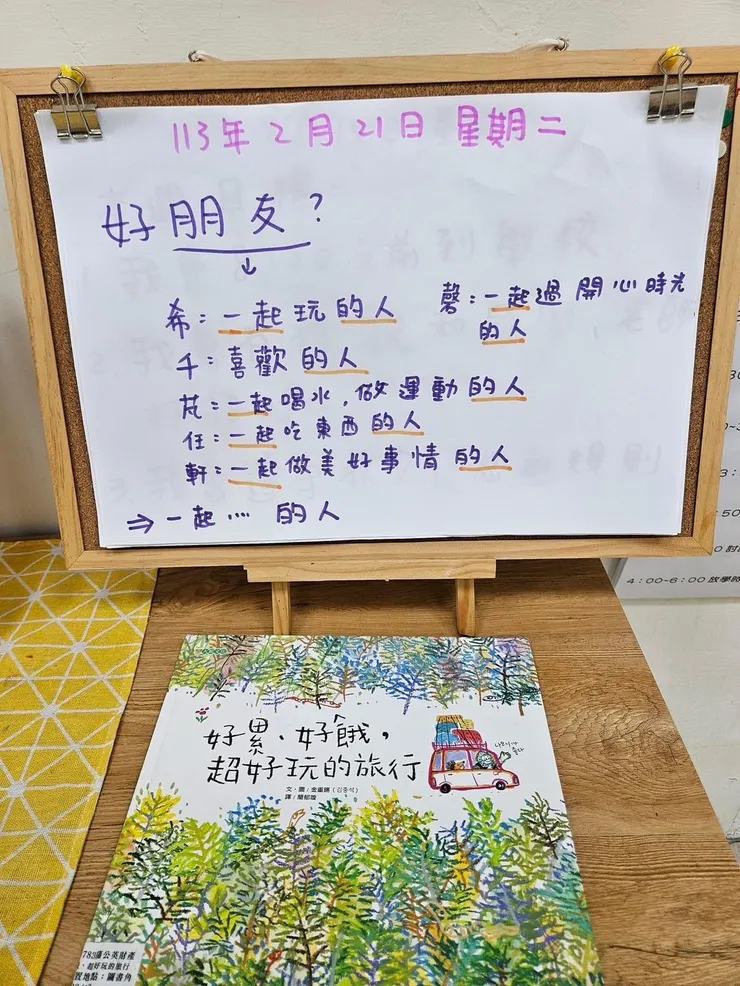 113年2月21日 星期二
好朋友?
↓
希:一起玩的人
千:喜歡的人
芃:一起喝水,做運動的人
任:一起吃東西的人
軒:一起做美好事情的人
馨:一起過開心時光
的人
⇒一起.... 的人
4:00-6:00 放學
好累、好餓,
超好玩的旅行
文・圖/金重錫(김중석)
譯/簡郁璇
782蒲公英財產
、超好玩的旅行
置地點:圖書角